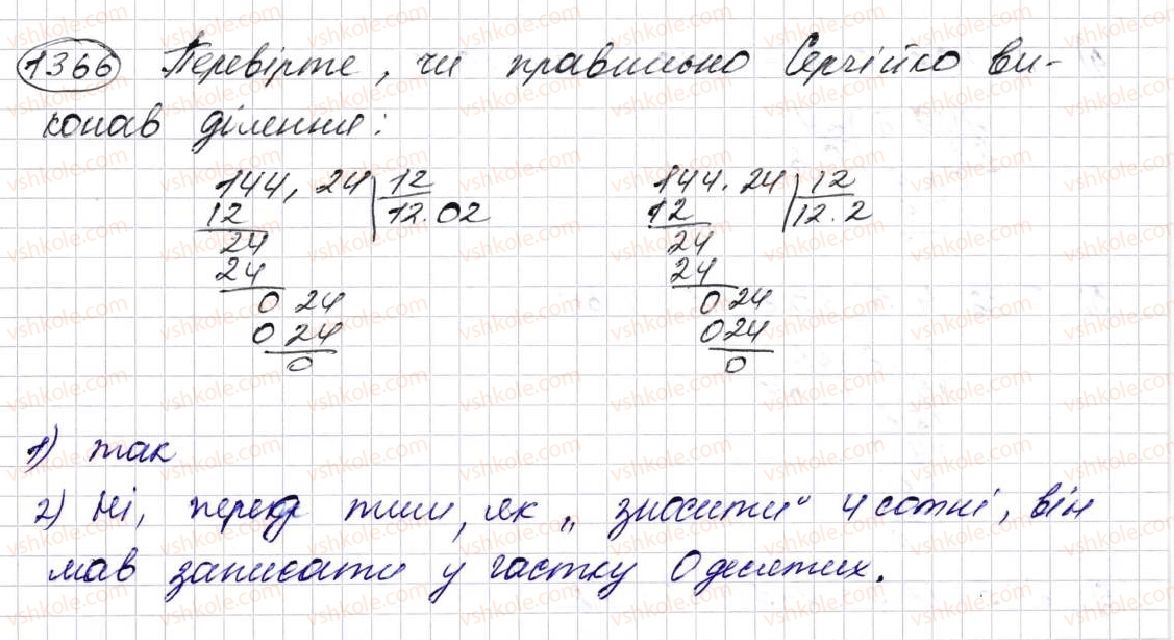 1366 Перевірте, чи правильно Сергійко ви-
конав ділення:
144,24 | 12
12 12.02
24
24
0 24
0 24
0
144.24 | 12
12 12.2
24
24
0 24
024
0
1) так
2) Ні, перед тим, як „зносити" 4 сотні, він
мав записати у частку 0 десятих.